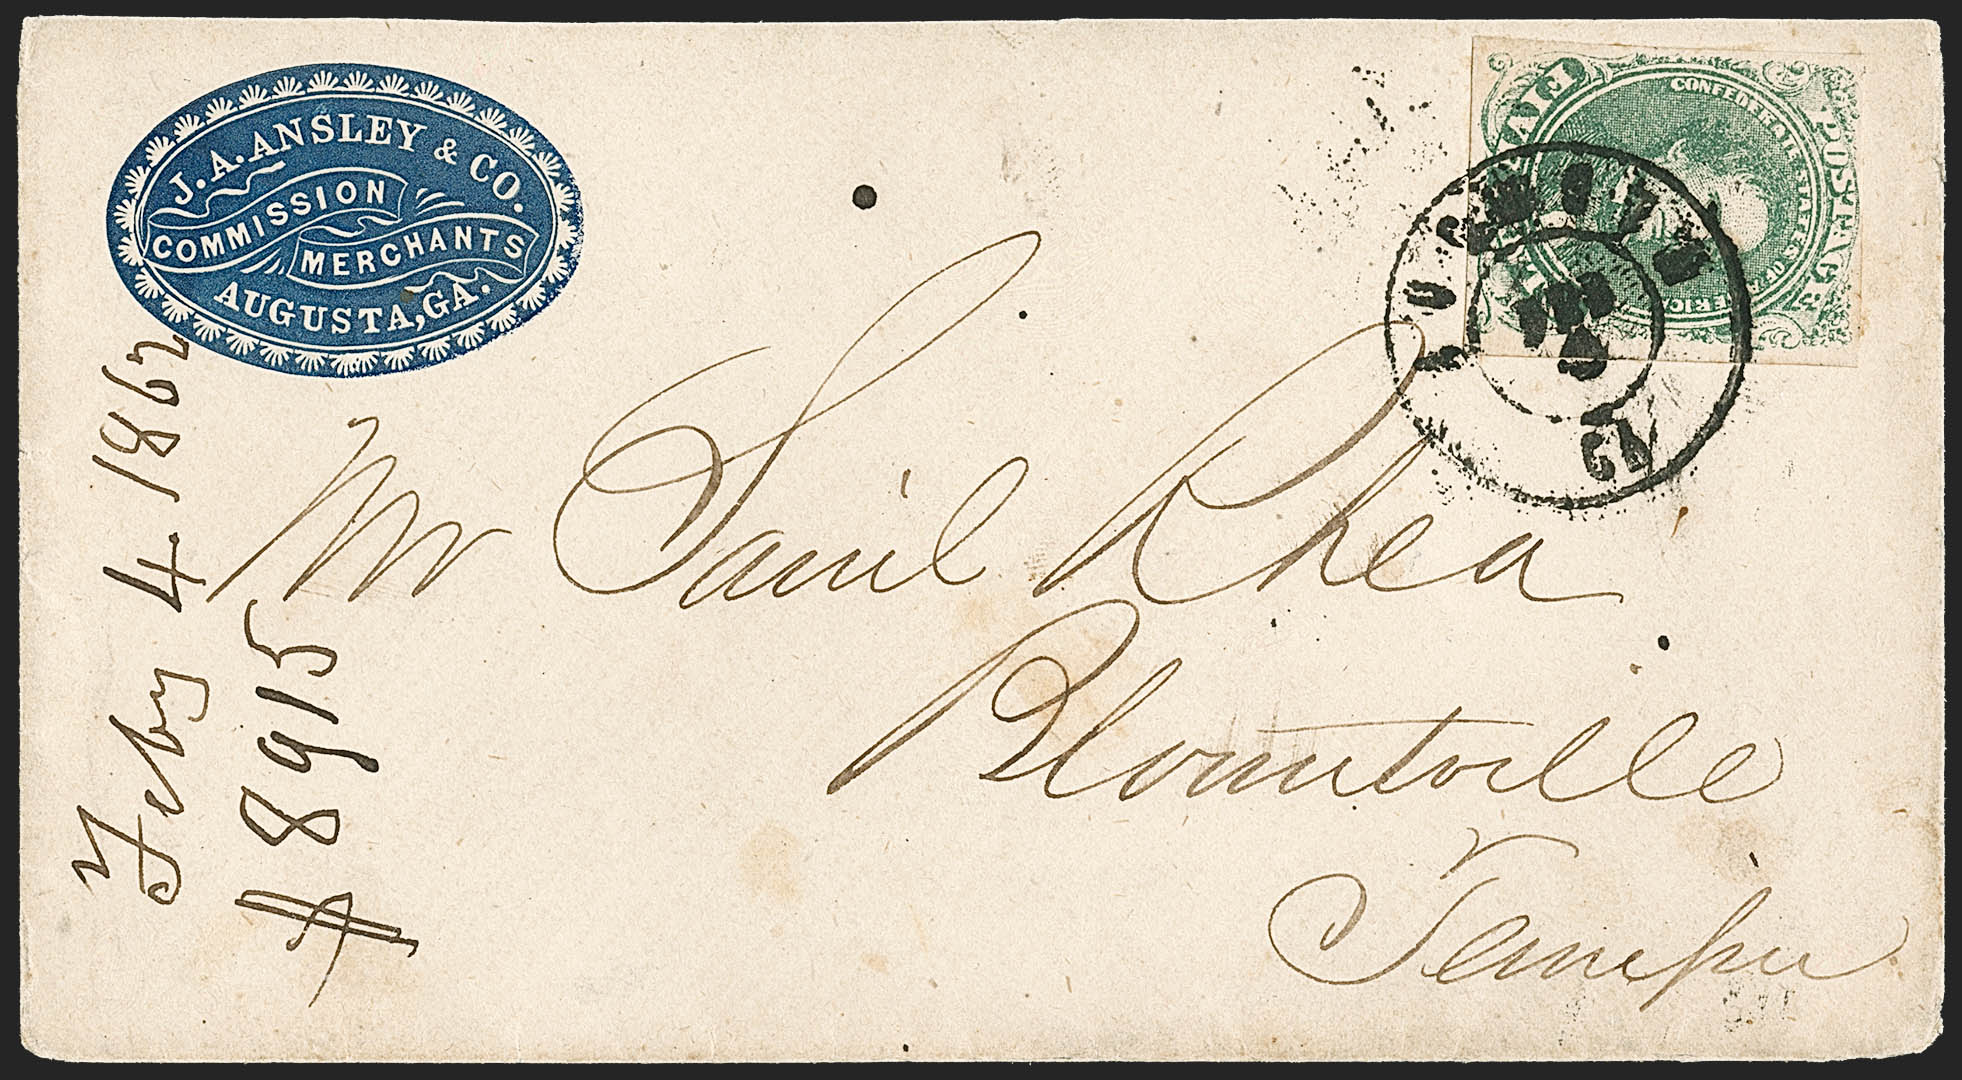 J. A. ANSLEY & CO.
COMMISSION
MERCHANTS
AUGUSTA, GA.
FIVE
POSTAGE
CONFEDERATE STATES OF AMERICA
AUGUSTA
FEB
Feby 4 1862
$8915
Mr Saml Rhea
Blountville